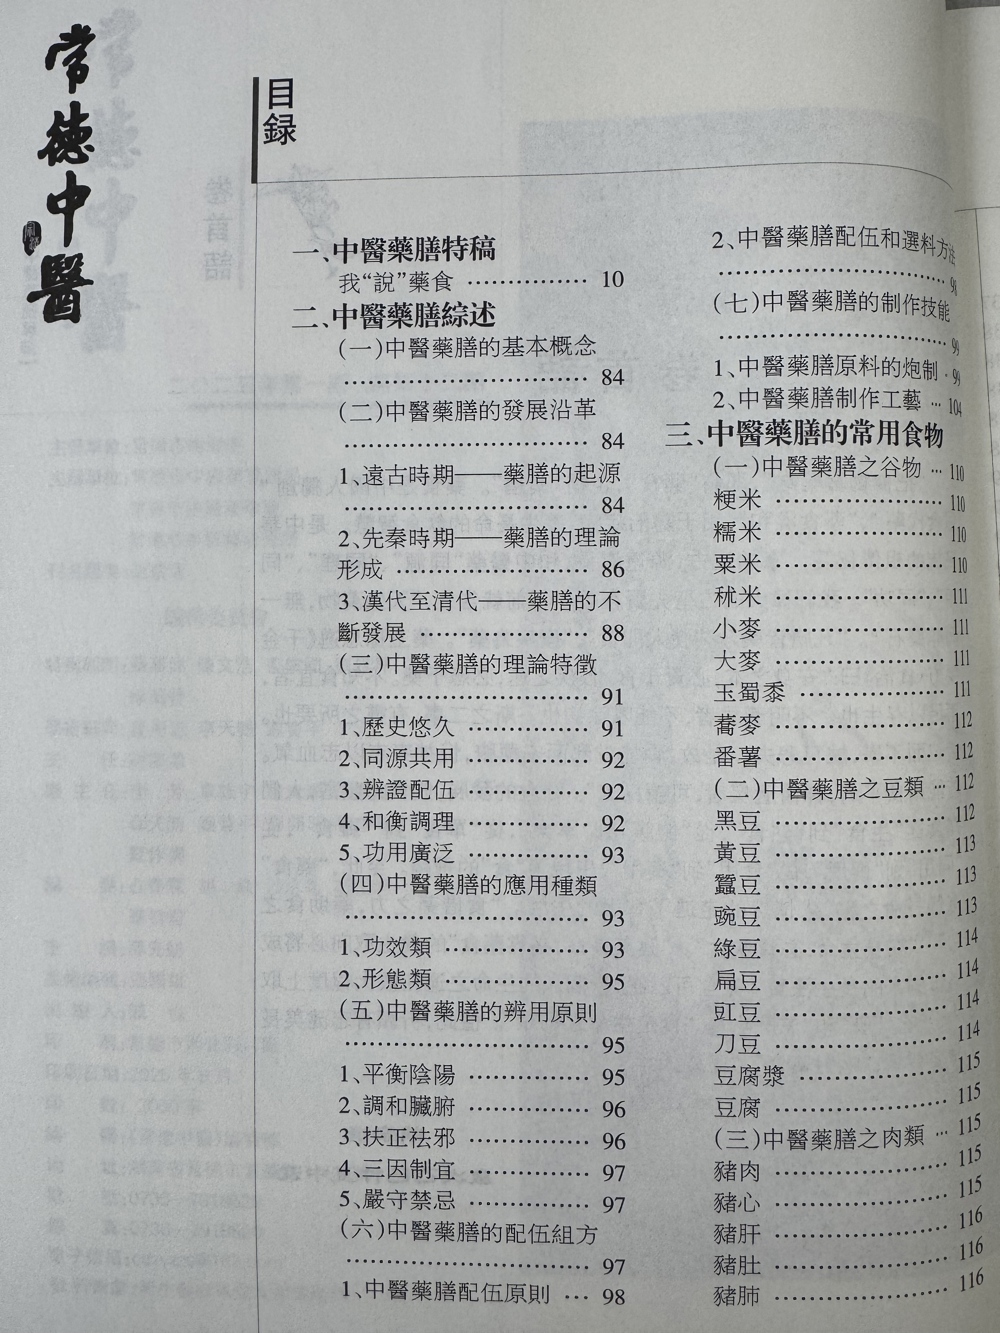 常德中醫
目録
一、中醫藥膳特稿
我“説”藥食 ⋯⋯⋯⋯⋯ 10
二、中醫藥膳綜述
(一)中醫藥膳的基本概念
⋯⋯⋯⋯⋯⋯⋯⋯⋯ 84
(二)中醫藥膳的發展沿革
⋯⋯⋯⋯⋯⋯⋯⋯⋯ 84
1、遠古時期——藥膳的起源
⋯⋯⋯⋯⋯⋯⋯⋯⋯ 84
2、先秦時期——藥膳的理論
形成 ⋯⋯⋯⋯⋯⋯⋯ 86
3、漢代至清代——藥膳的不
斷發展 ⋯⋯⋯⋯⋯⋯ 88
(三)中醫藥膳的理論特徵
⋯⋯⋯⋯⋯⋯⋯⋯⋯ 91
1、歷史悠久 ⋯⋯⋯⋯ 91
2、同源共用 ⋯⋯⋯⋯ 92
3、辨證配伍 ⋯⋯⋯⋯ 92
4、和衡調理 ⋯⋯⋯⋯ 92
5、功用廣泛 ⋯⋯⋯⋯ 93
(四)中醫藥膳的應用種類
⋯⋯⋯⋯⋯⋯⋯⋯⋯ 93
1、功效類 ⋯⋯⋯⋯⋯ 93
2、形態類 ⋯⋯⋯⋯⋯ 95
(五)中醫藥膳的辨用原則
⋯⋯⋯⋯⋯⋯⋯⋯⋯ 95
1、平衡陰陽 ⋯⋯⋯⋯ 95
2、調和臟腑 ⋯⋯⋯⋯ 96
3、扶正祛邪 ⋯⋯⋯⋯ 96
4、三因制宜 ⋯⋯⋯⋯ 97
5、嚴守禁忌 ⋯⋯⋯⋯ 97
(六)中醫藥膳的配伍組方
⋯⋯⋯⋯⋯⋯⋯⋯⋯ 97
1、中醫藥膳配伍原則 ⋯ 98
2、中醫藥膳配伍和選料方法
⋯⋯⋯⋯⋯⋯⋯⋯⋯ 98
(七)中醫藥膳的制作技能
⋯⋯⋯⋯⋯⋯⋯⋯⋯ 99
1、中醫藥膳原料的炮制 · 99
2、中醫藥膳制作工藝 ⋯ 104
三、中醫藥膳的常用食物
(一)中醫藥膳之谷物 ⋯ 110
粳米 ⋯⋯⋯⋯⋯⋯⋯ 110
糯米 ⋯⋯⋯⋯⋯⋯⋯ 110
粟米 ⋯⋯⋯⋯⋯⋯⋯ 110
秫米 ⋯⋯⋯⋯⋯⋯⋯ 111
小麥 ⋯⋯⋯⋯⋯⋯⋯ 111
大麥 ⋯⋯⋯⋯⋯⋯⋯ 111
玉蜀黍 ⋯⋯⋯⋯⋯⋯ 111
蕎麥 ⋯⋯⋯⋯⋯⋯⋯ 112
番薯 ⋯⋯⋯⋯⋯⋯⋯ 112
(二)中醫藥膳之豆類 ⋯ 112
黑豆 ⋯⋯⋯⋯⋯⋯⋯ 112
黃豆 ⋯⋯⋯⋯⋯⋯⋯ 113
蠶豆 ⋯⋯⋯⋯⋯⋯⋯ 113
豌豆 ⋯⋯⋯⋯⋯⋯⋯ 113
綠豆 ⋯⋯⋯⋯⋯⋯⋯ 114
扁豆 ⋯⋯⋯⋯⋯⋯⋯ 114
豇豆 ⋯⋯⋯⋯⋯⋯⋯ 114
刀豆 ⋯⋯⋯⋯⋯⋯⋯ 114
豆腐漿 ⋯⋯⋯⋯⋯⋯ 115
豆腐 ⋯⋯⋯⋯⋯⋯⋯ 115
(三)中醫藥膳之肉類 ⋯ 115
豬肉 ⋯⋯⋯⋯⋯⋯⋯ 115
豬心 ⋯⋯⋯⋯⋯⋯⋯ 115
豬肝 ⋯⋯⋯⋯⋯⋯⋯ 116
豬肚 ⋯⋯⋯⋯⋯⋯⋯ 116
豬肺 ⋯⋯⋯⋯⋯⋯⋯ 116